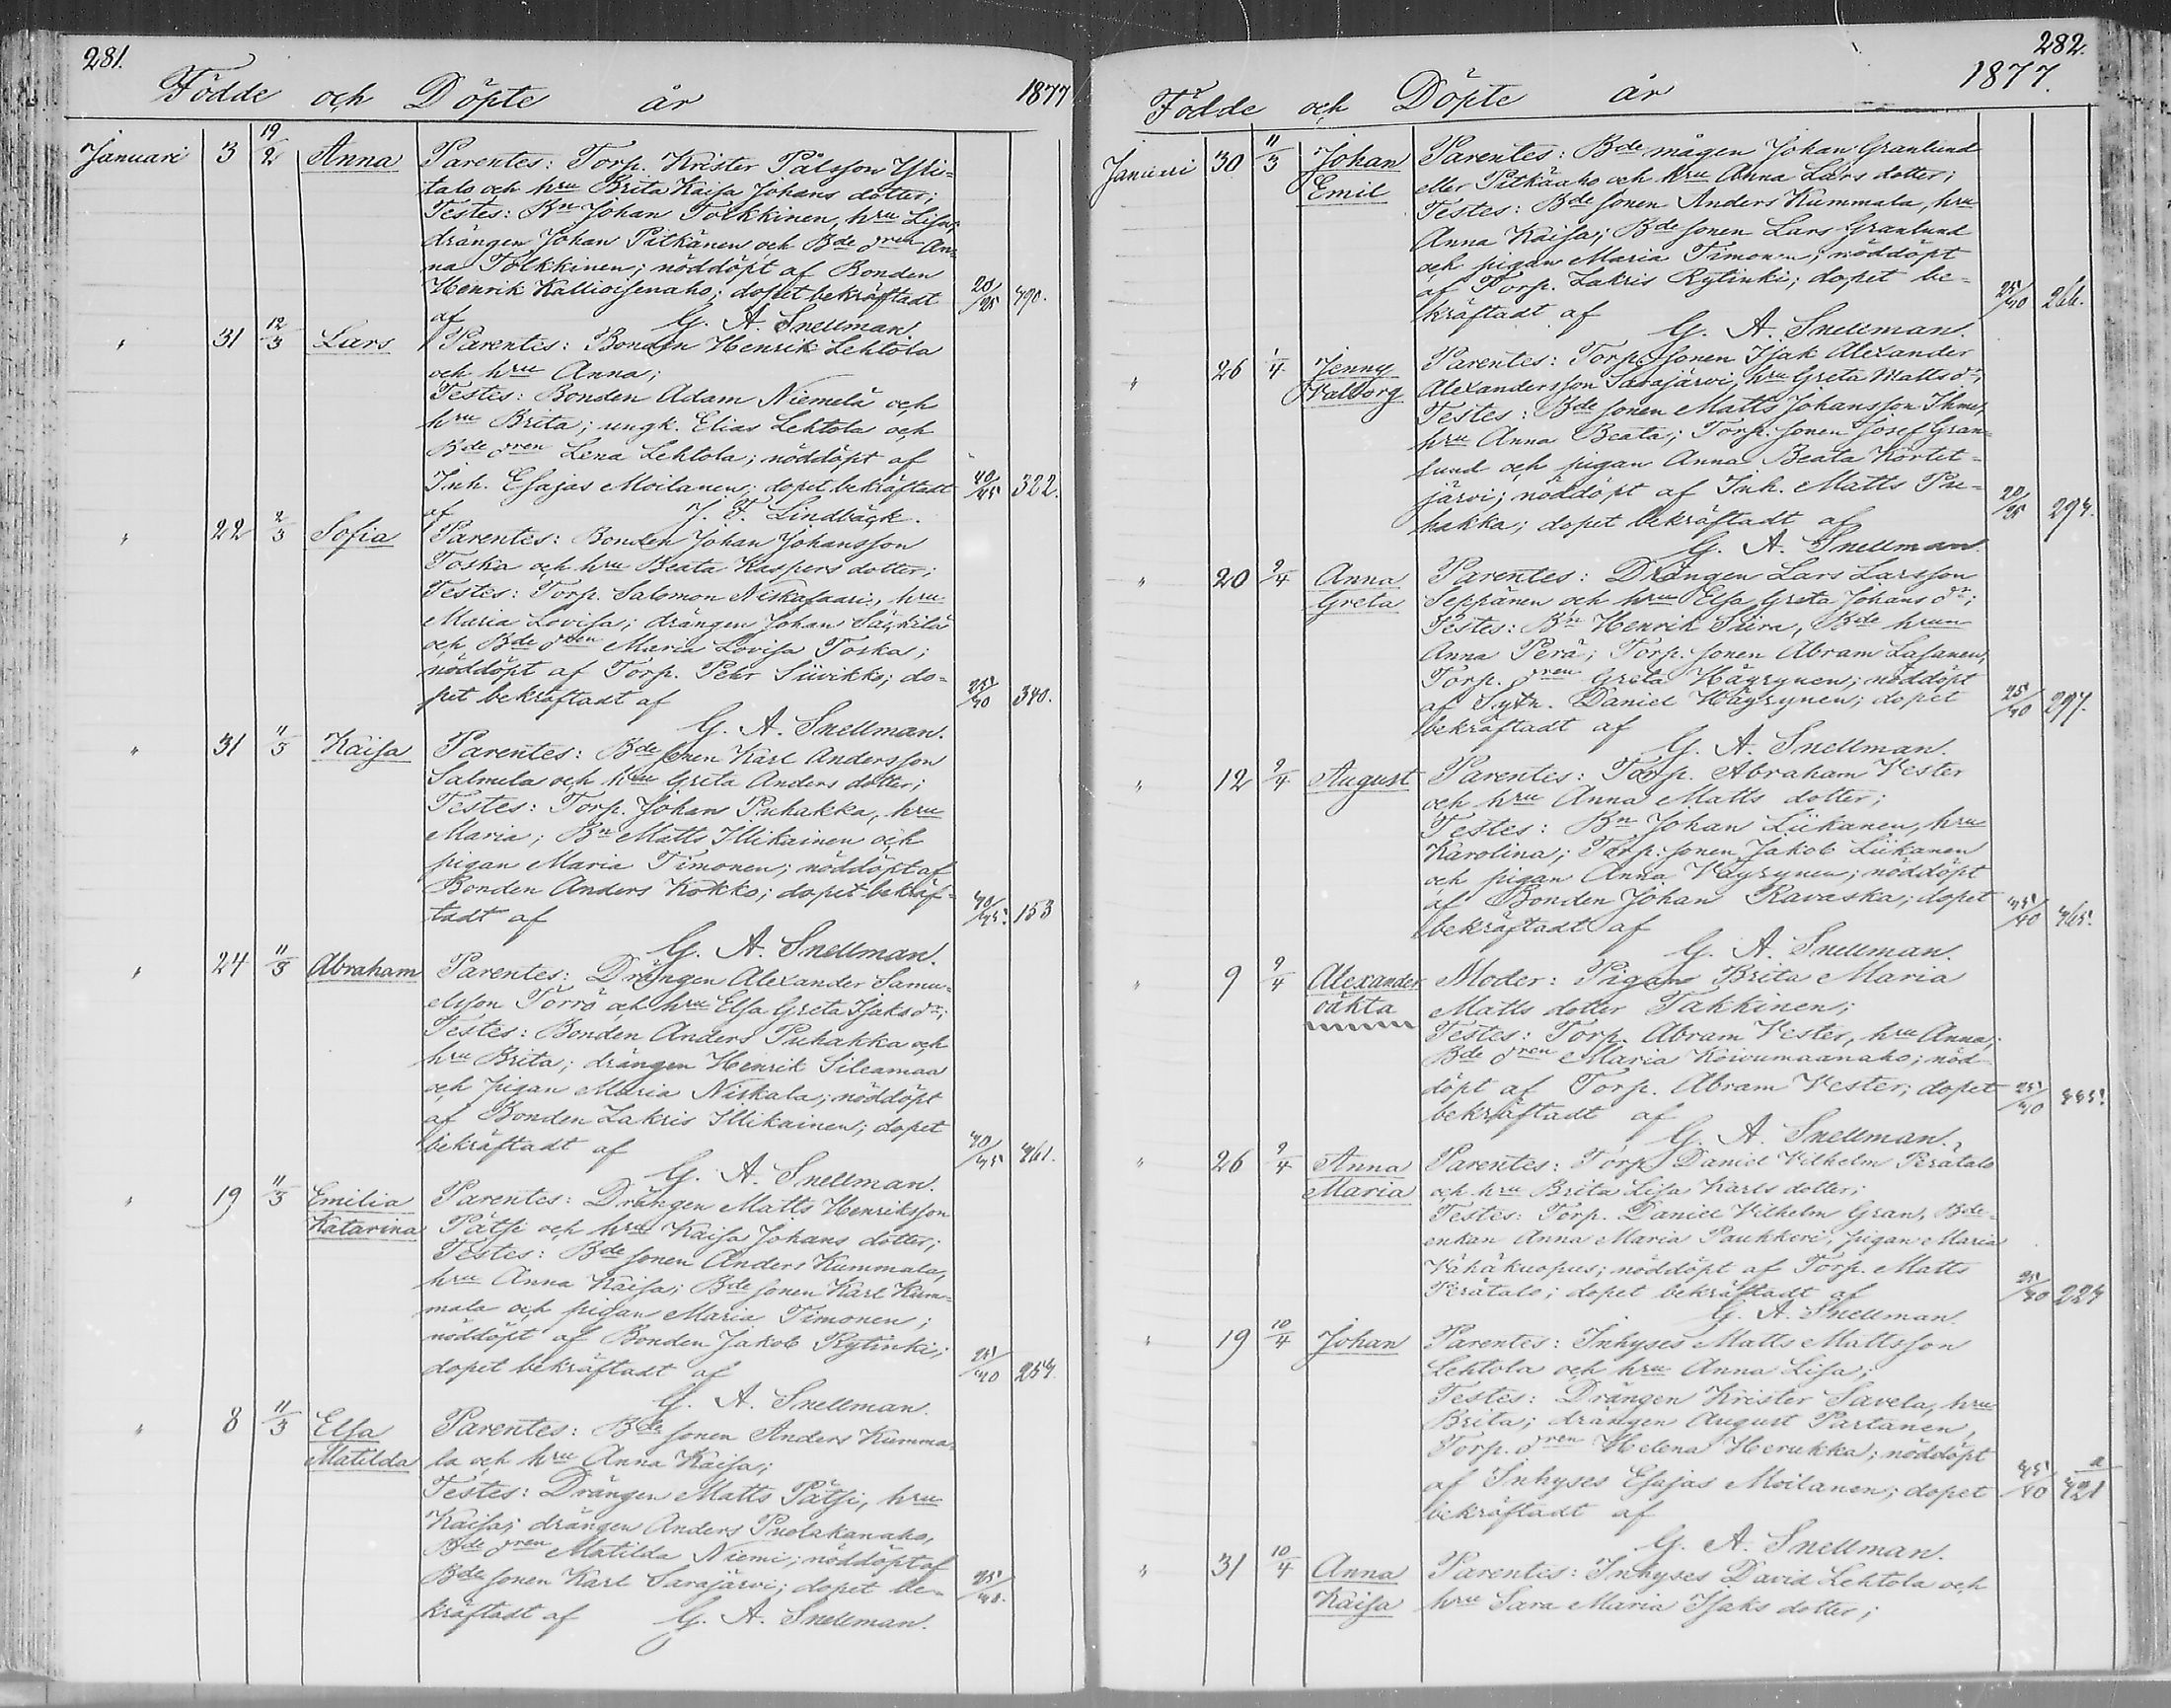 281.
Födde och Döpte år 1877
Januari 3 19/2 Anna Parentes: Torp. Krister Pålsson Yli-
talo och hru Brita Kaisa Johans dotter;
Testes: Bn Johan Tolkkinen, hru Lisa;
drängen Johan Pitkänen och Bde dren An-
na Tolkkinen; nöddöpt af Bonden
Henrik Kallioisenaho; dopet bekräftadt 20/25 490.
af G. A. Snellman
" 31 12/3 Lars Parentes: Bonden Henrik Lehtola
och hru Anna;
Testes: Bonden Adam Niemelä och
hru Brita; ungk. Elias Lehtola och
Bde dren Lena Lehtola; nöddöpt af
Inh. Esajas Moilanen; dopet bekräftadt 40/45 322.
af J. F. Lindbäck.
" 22 2/3 Sofia Parentes: Bonden Johan Johansson
Toska och hru Beata Kaspers dotter;
Testes: Torp. Salomon Niskasaari, hru
Maria Lovisa; drängen Johan Särkilä
och Bde dren Maria Lovisa Toska;
nöddöpt af Torp. Pehr Siivikko; do-
pet bekräftadt af 25/30 340.
G. A. Snellman.
" 31 11/3 Kaisa Parentes: Bde sonen Karl Andersson
Salmela och hru Greta Anders dotter;
Testes: Torp. Johan Puhakka, hru
Maria; Bn Matts Illikainen och
pigan Maria Timonen; nöddöpt af
Bonden Anders Kokko; dopet bekräf-
tadt af 40/45. 153
G. A. Snellman.
" 24 11/3 Abraham Parentes: Drängen Alexander Samu-
elsson Törrö och hru Elsa Greta Isaks dr;
Testes: Bonden Anders Puhakka och
hru Brita; drängen Henrik Sileamaa
och pigan Maria Niskala; nöddöpt
af Bonden Zakris Illikainen; dopet
bekräftadt af 40/45 461.
G. A. Snellman.
" 19 11/3 Emilia Parentes: Drängen Matts Henriksson
Katarina Pätsi och hru Kaisa Johans dotter;
Testes: Bde sonen Anders Kummala,
hru Anna Kaisa; Bde sonen Karl Kum-
mala och pigan Maria Timonen;
nöddöpt af Bonden Jakob Rytinki;
dopet bekräftadt af 257.
G. A. Snellman.
" 8 11/3 Elsa Parentes: Bde sonen Anders Kumma-
Matilda la och hru Anna Kaisa;
Testes: Drängen Matts Pätsi, hru
Kaisa; drängen Anders Puolakanaho,
Bde dren Matilda Niemi; nöddöpt af
Bde sonen Karl Sarajärvi; dopet be-
kräftadt af G. A. Snellman.
282.
Födde och Döpte år 1877.
Januari 30 11/3 Johan Parentes: Bde mågen Johan Granlund
Emil eller Pitkäaho och hru Anna Lars dotter;
Testes: Bde sonen Anders Kummala, hru
Anna Kaisa; Bde sonen Lars Granlund
och pigan Maria Timonen; nöddöpt
af Torp. Zakris Rytinki; dopet be-
kräftadt af 266.
G. A. Snellman.
" 26 1/4 Jenny Parentes: Torp. sonen Isak Alexander
Walborg Alexandersson Sarajärvi, hru Greta Matts dr;
Testes: Bde sonen Matts Johansson Ihme,
hru Anna Beata; Torp. sonen Josef Gran-
lund och pigan Anna Beata Kortet-
järvi; nöddöpt af Inh. Matts Pu-
hakka; dopet bekräftadt af
G. A. Snellman.
" 20 9/4 Anna Parentes: Drängen Lars Larsson
Greta Seppänen och hru Elsa Greta Johans dr;
Testes: Bn Henrik Siira, Bde hrun
Anna Perä; Torp. sonen Abram Lasanen,
Torp. dren Greta Häyrynen; nöddöpt
af Sytn. Daniel Häyrynen; dopet
bekräftadt af 297.
G. A. Snellman.
" 12 9/4 August Parentes: Torp. Abraham Vester
och hru Anna Matts dotter;
Testes: Bn Johan Liikanen, hru
Karolina; Torp. sonen Jakob Liikanen
och pigan Anna Väyrynen; nöddöpt
af Bonden Johan Ravaska; dopet
bekräftadt af 465.
G. A. Snellman.
" 9 9/4 Alexander Moder: Pigan Brita Maria
oäkta Matts dotter Takkinen;
Testes: Torp. Abram Vester, hru Anna;
Bde dren Maria Koivumaanaho; nöd-
döpt af Torp. Abram Vester; dopet
bekräftadt af
G. A. Snellman.
" 26 9/4 Anna Parentes: Torp. Daniel Vilhelm Perätalo
Maria och hru Brita Lisa Karls dotter;
Testes: Torp. Daniel Vilhelm Gran, Bde-
enkan Anna Maria Paukkeri, pigan Maria
Vähäkuopus; nöddöpt af Torp. Matts
Perätalo; dopet bekräftadt af 224
G. A. Snellman.
" 19 10/4 Johan Parentes: Inhyses Matts Mattsson
Lehtola och hru Anna Lisa;
Testes: Drängen Krister Savela, hru
Brita; drängen August Partanen,
Torp. dren Helena Herukka; nöddöpt
af Inhyses Esajas Moilanen; dopet 421
bekräftadt af
G. A. Snellman.
" 31 10/4 Anna Parentes: Inhyses David Lehtola och
Kaisa hru Sara Maria Isaks dotter;